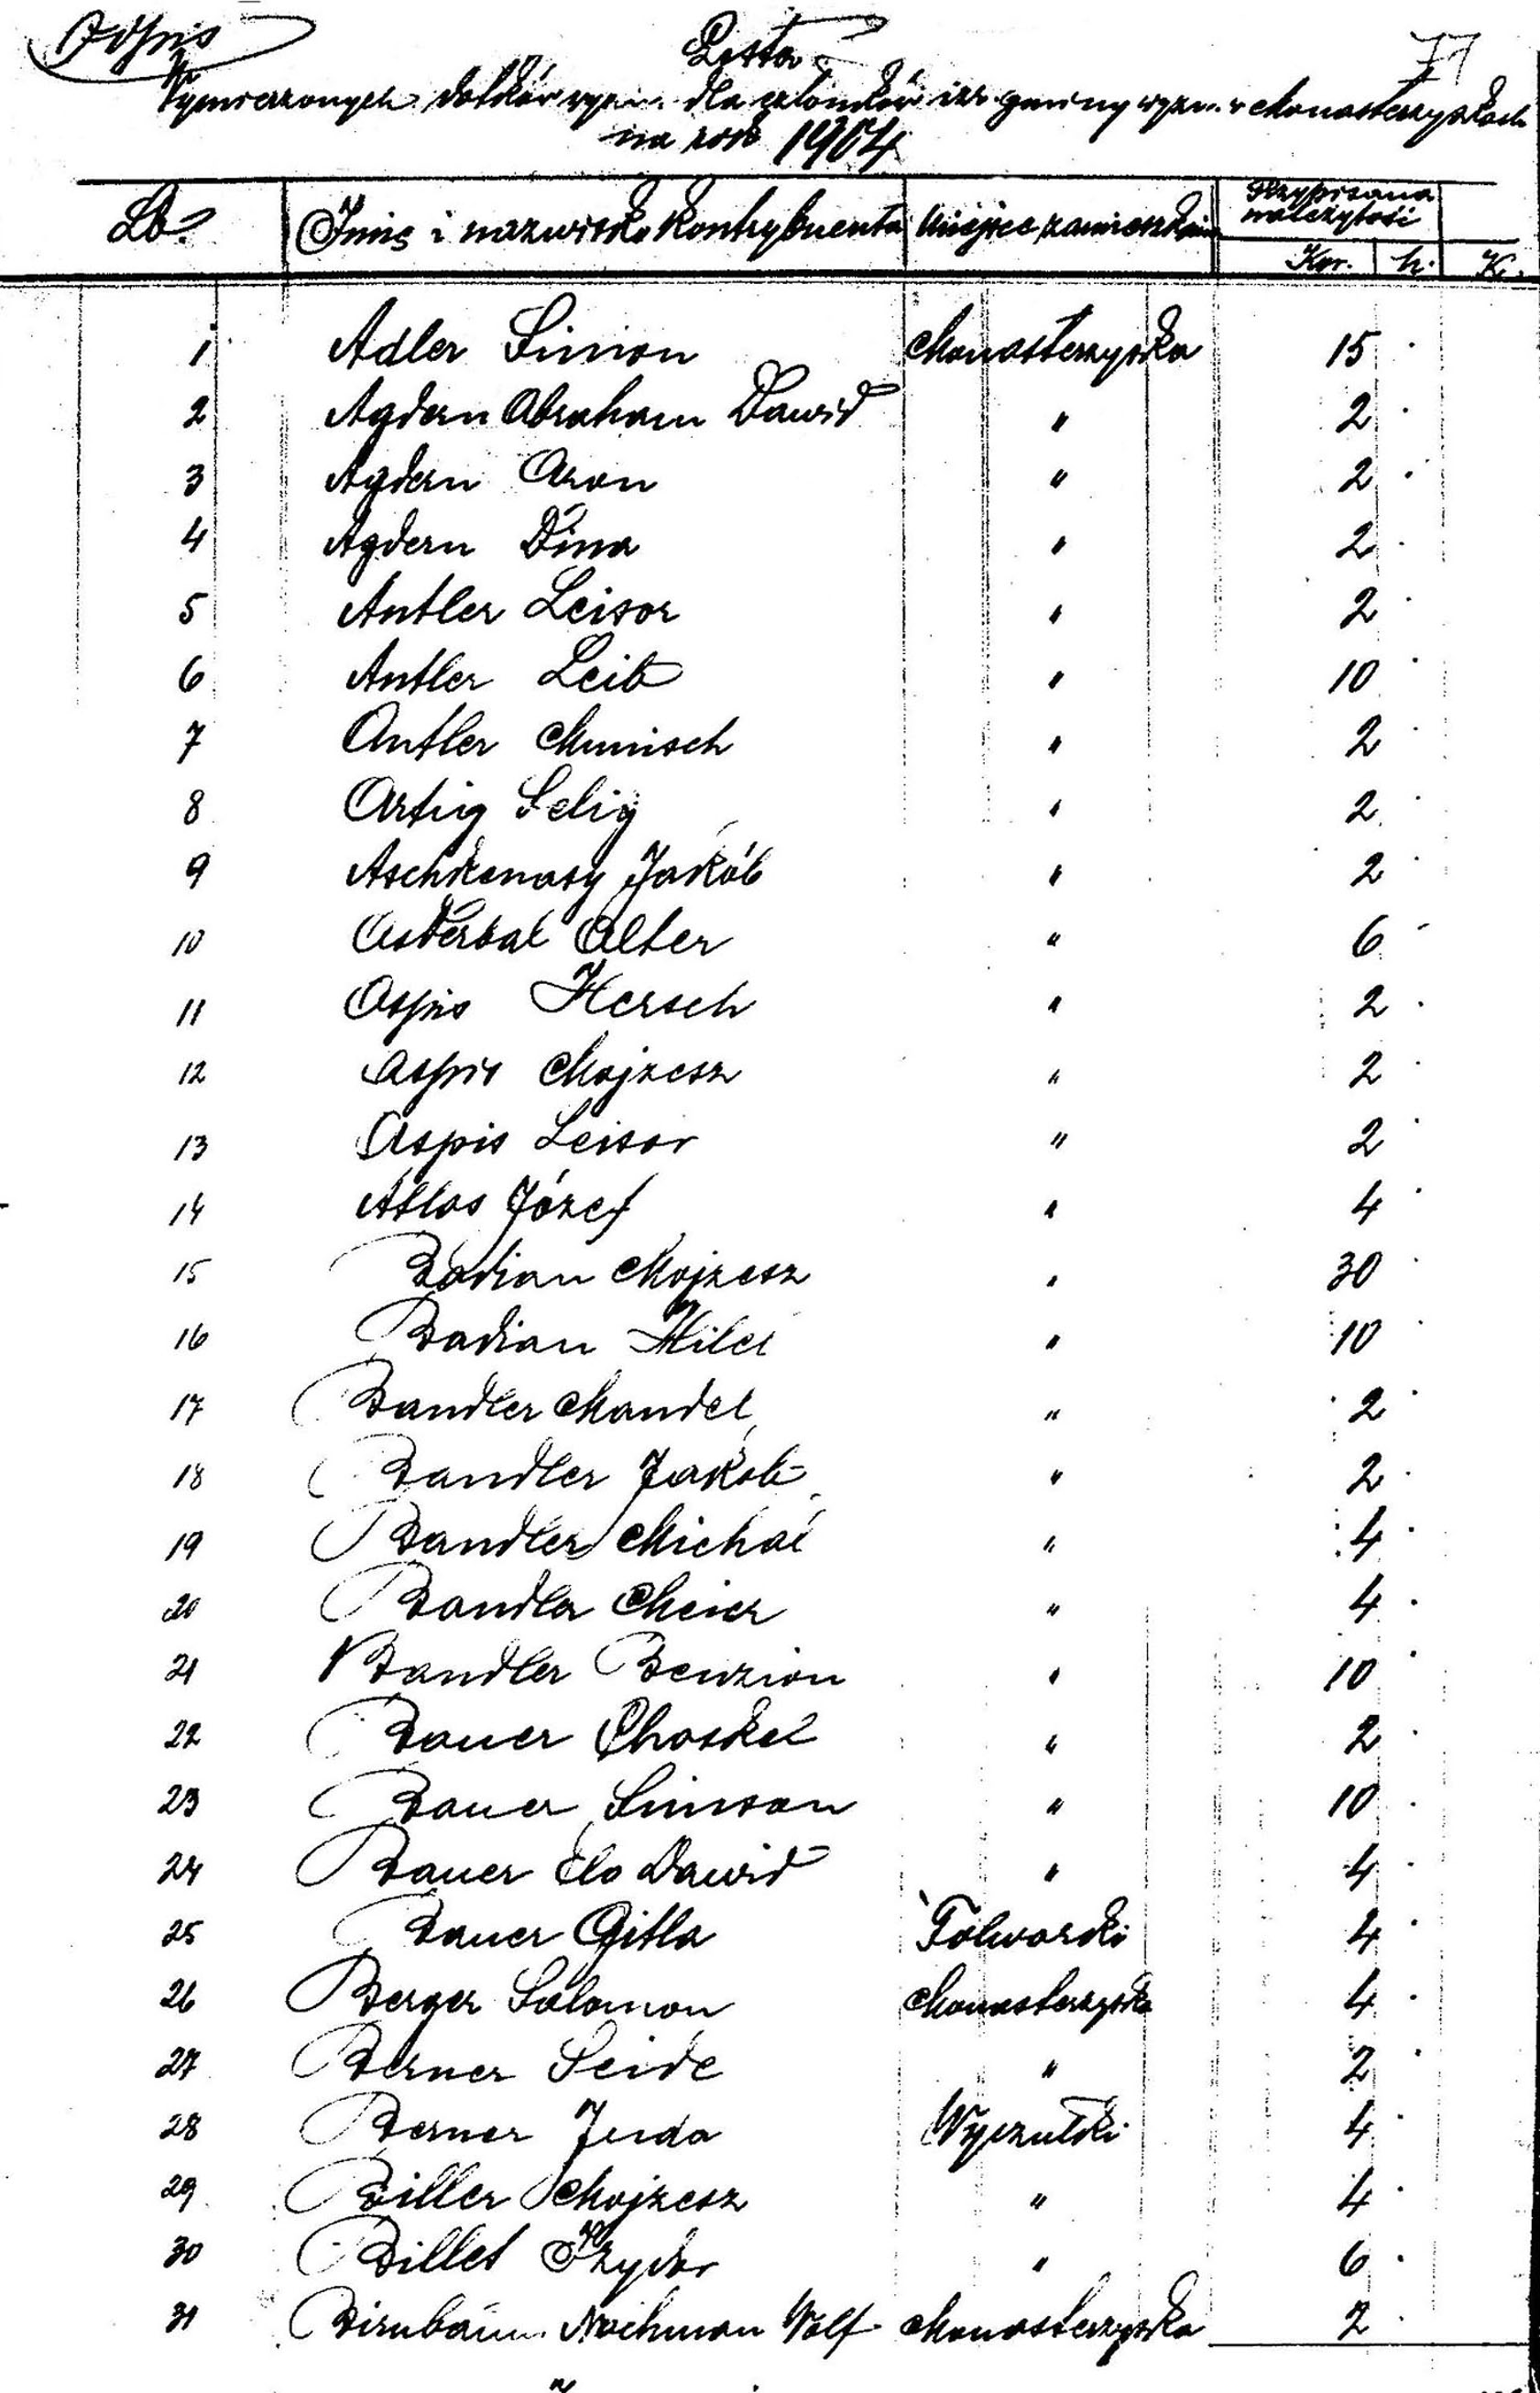 Odpis
77
Lista
Wymierzonych datków wyzn. dla członków izr. gminy wyzn. w Monasterzyskach
na rok 1904
Lb. Imię i nazwisko kontrybuenta Miejsce zamieszkania Przypisana należytość
Kor. h. K.
1 Adler Simon Monasterzyska 15 .
2 Agdern Abraham Dawid " 2 .
3 Agdern Aron " 2 .
4 Agdern Dina " 2 .
5 Antler Leisor " 2 .
6 Antler Leib " 10 .
7 Antler Munisch " 2 .
8 Artig Selig " 2 .
9 Aschkenasy Jakób " 2 .
10 Alter " 6 -
11 Aspis Hersch " 2 .
12 Aspis Mojzesz " 2 .
13 Aspis Leisor " 2 .
14 Atlas Józef " 4 .
15 Badian Mojzesz " 30 .
16 Badian Hilel " 10 .
17 Bandler Mandel " 2 .
18 Bandler Jakób " 2 .
19 Bandler Michał " 4 .
20 Bandler Meier " 4 .
21 Bandler Benzion " 10 .
22 Bauer Chaskel " 2 .
23 Bauer Simson " 10 .
24 Bauer Elo Dawid " 4 .
25 Bauer Gitla Folwarki 4 .
26 Berger Salomon Monasterzyska 4 .
27 Berner Seide " 2 .
28 Berner Juda Wyczułki 4 .
29 Biller Mojzesz " 4 .
30 Billet Izydor " 6 .
31 Birnbaum Nachman Wolf Monasterzyska 2 .